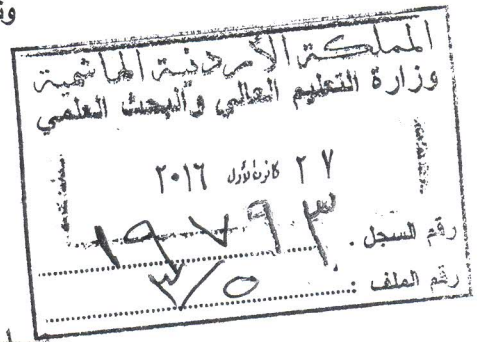 المملكة الأردنية الهاشمية
وزارة التعليم العالي والبحث العلمي
٢٧ كانون الأول ٢٠١٦
رقم السجل . ١٩٧٩٣
رقم الملف : ٣/٥